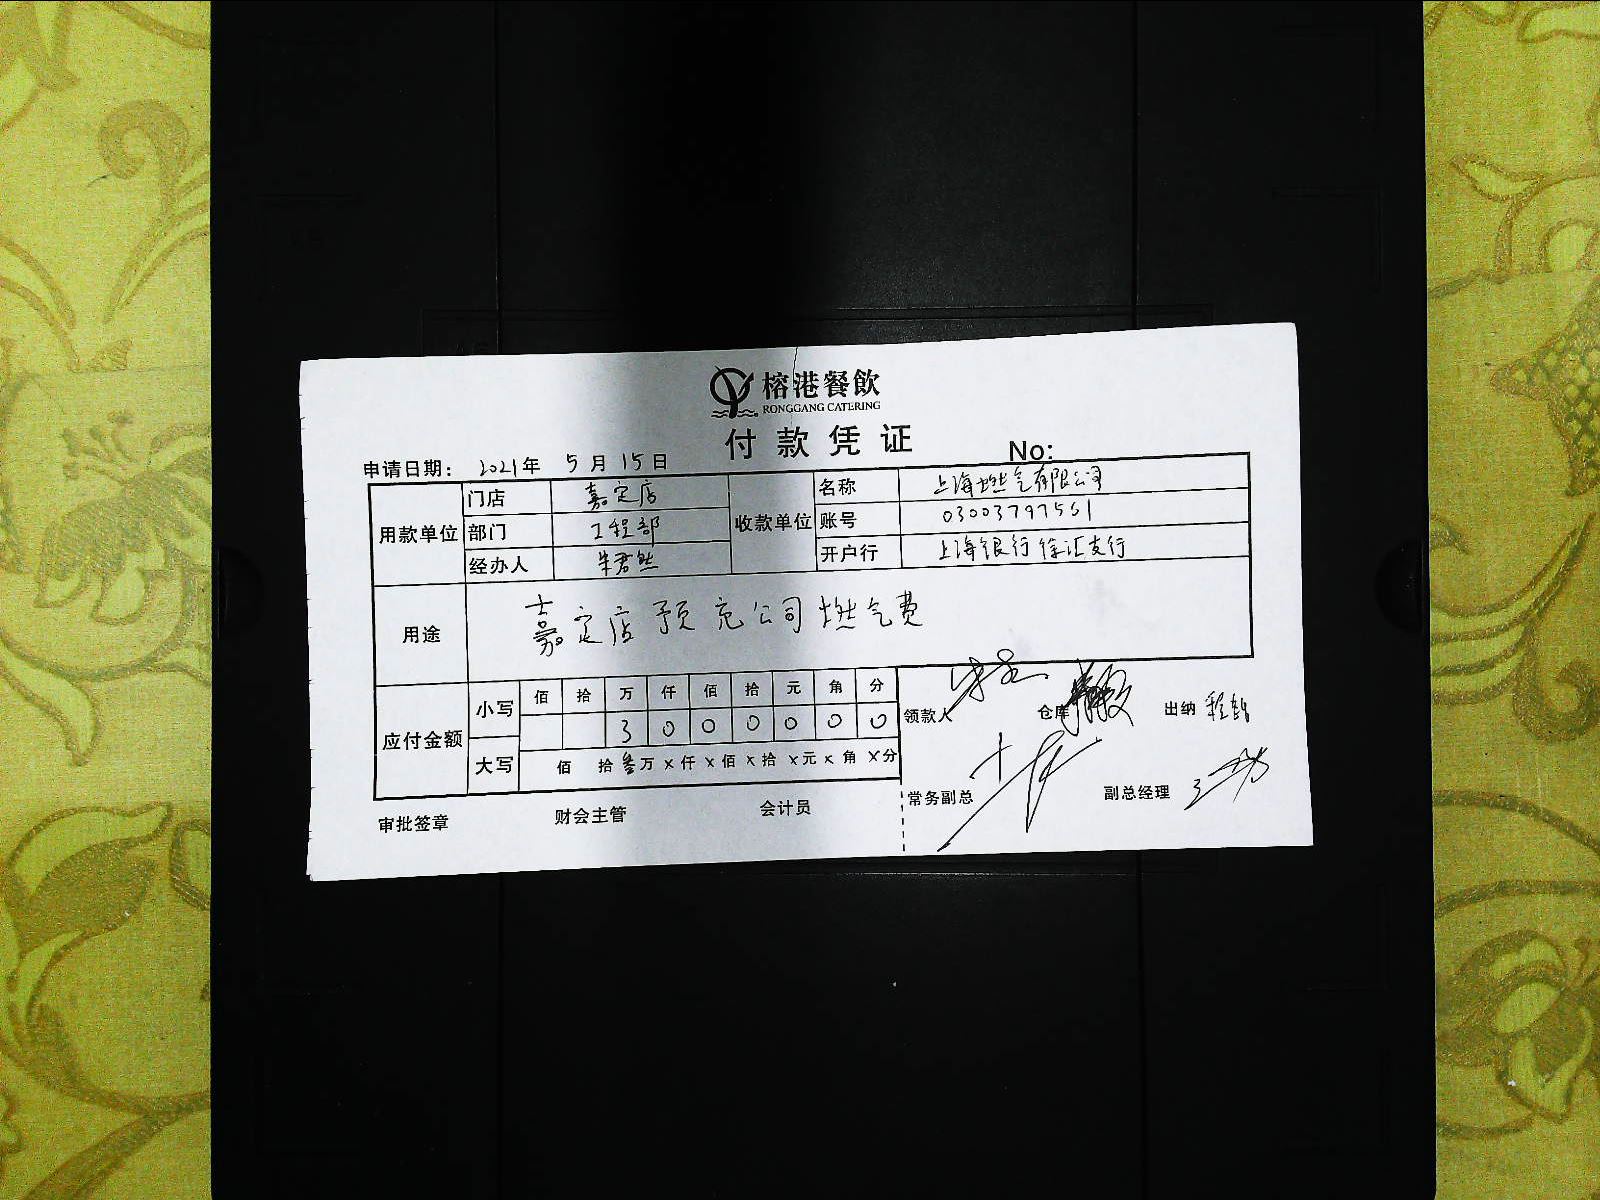 榕港餐飲
RONGGANG CATERING
付款凭证
No:
申请日期: 2021年 5月 15日
用款单位 门店 嘉定店 收款单位 名称 上海燃气有限公司
部门 工程部 账号 03003797551
经办人 朱君然 开户行 上海银行徐汇支行
用途 嘉定店预充公司燃气费
应付金额 小写 佰 拾 万 仟 佰 拾 元 角 分
3 0 0 0 0 0 0
大写 佰 拾 叁万 ×仟 ×佰 ×拾 ×元 ×角 ×分
领款人 仓库 出纳
常务副总 副总经理
审批签章 财会主管 会计员